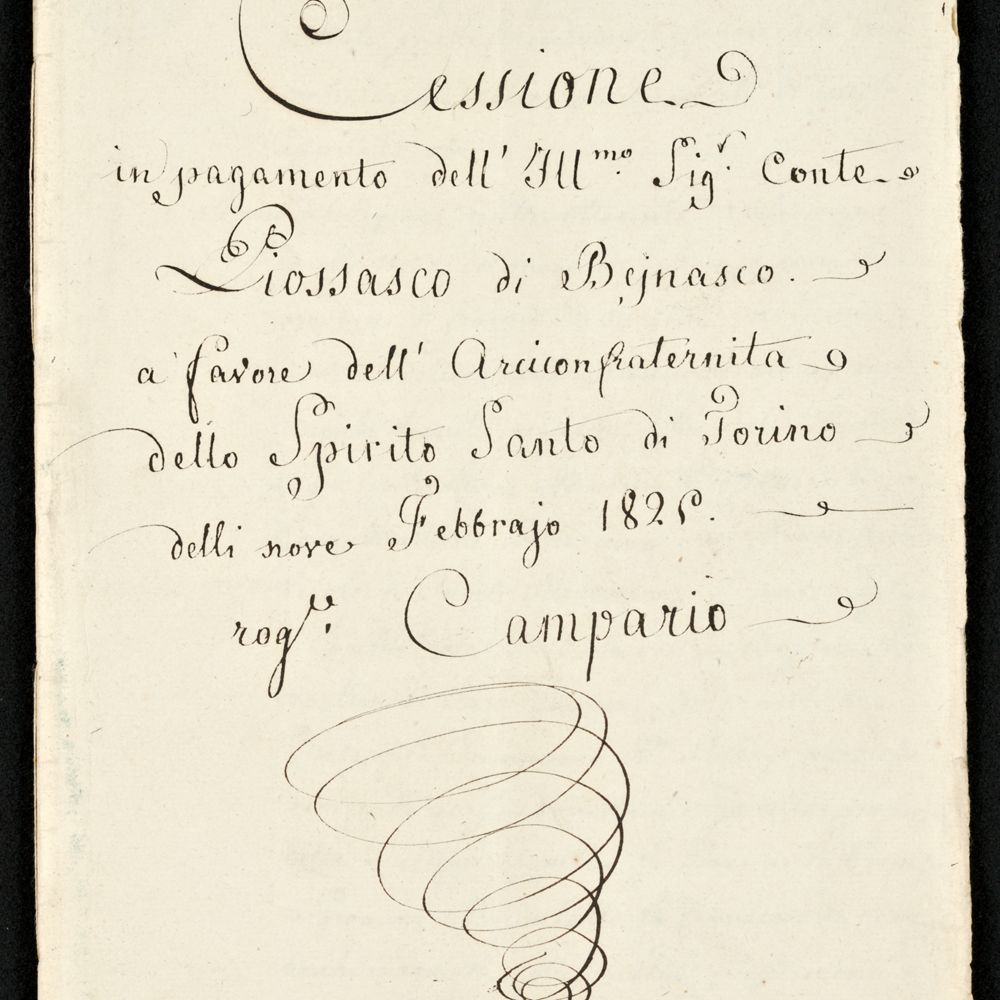 Cessione
in pagamento dell' Ill.mo Sig.r Conte
Piossasco di Bejnasco.
a favore dell' Arciconfraternita
dello Spirito Santo di Torino
delli nove Febbrajo 1825.
rog.to Campario